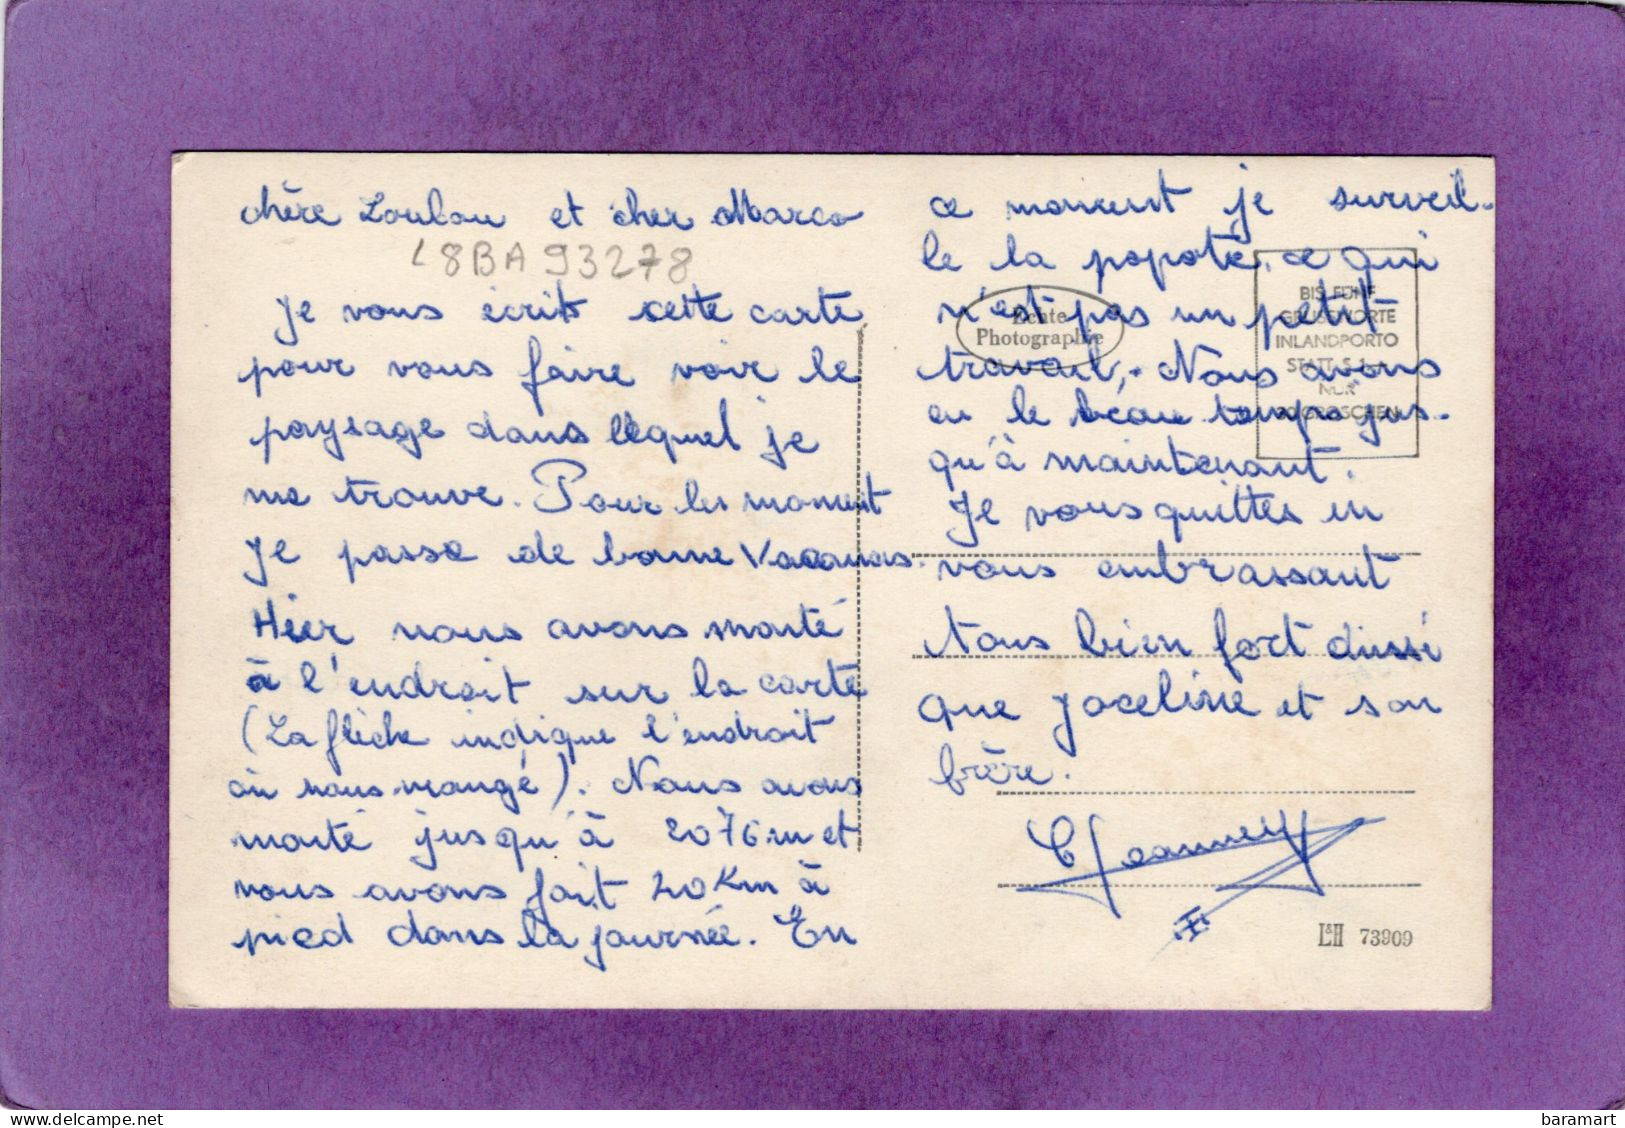 chère Loulou et cher Marco
L8BA93278
Je vous écrit cette carte
pour vous faire voir le
paysage dans lequel je
me trouve. Pour les moment
je passe de bonne Vacances.
Hier nous avons monté
à l'endroit sur la carte
(La flèche indique l'endroit
où nous mangé). Nous avons
monté jusqu'à 2076 m et
nous avons fait 20 Km à
pied dans la journée. En
ce moment je surveil-
le la popote, ce qui
n'est pas un petit
travail, Nous avons
eu le beau temps jus-
qu'à maintenant.
Je vous quittes en
vous embrassant
tous bien fort aussi
que Joceline et son
frère.
C Jeanney
BIS FÜNF
GRUSSWORTE
INLANDPORTO
STATT S 1.-
NUR
GROSCHEN
Echte
Photographie
L&H 73909
baramart